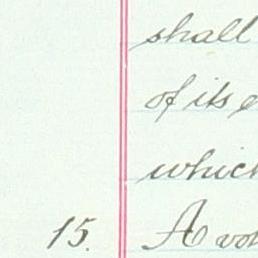 shall
of its
which
15. A